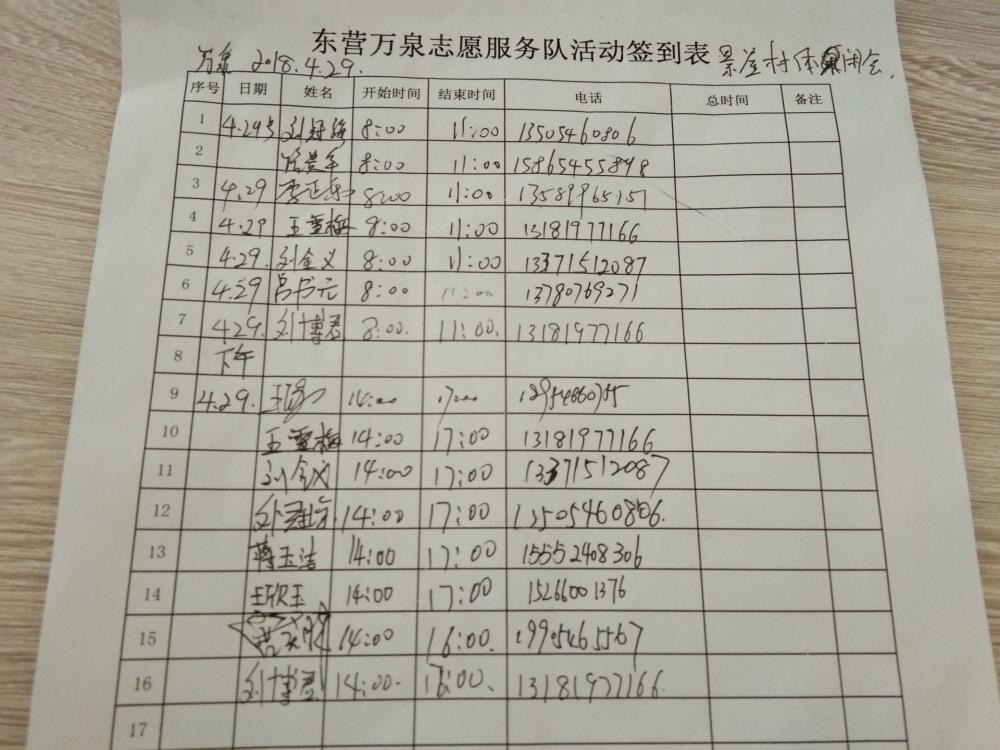 东营万泉志愿服务队活动签到表
万泉 2018.4.29.
序号 日期 姓名 开始时间 结束时间 电话 总时间 备注
1 4.29 8:00 11:00 13505460806
2 8:00 11:00 15865455898
3 4.29 8:00 11:00 13589965151
4 4.29 王雪梅 8:00 11:00 13181977166
5 4.29. 刘金义 8:00 11:00 13371512087
6 4.29 吕书元 8:00 11:00 13780769271
7 4.29. 刘博君 8:00. 11:00. 13181977166
8 下午
9 4.29. 14:00 17:00
10 王雪梅 14:00 17:00 13181977166
11 刘金义 14:00 17:00 13371512087
12 14:00 17:00 13505460806.
13 蒋玉洁 14:00 17:00 15552408306
14 王欣玉 14:00 17:00 15266001376
15 14:00 16:00. 19905465567
16 刘博君 14:00. 16:00. 13181977166.
17